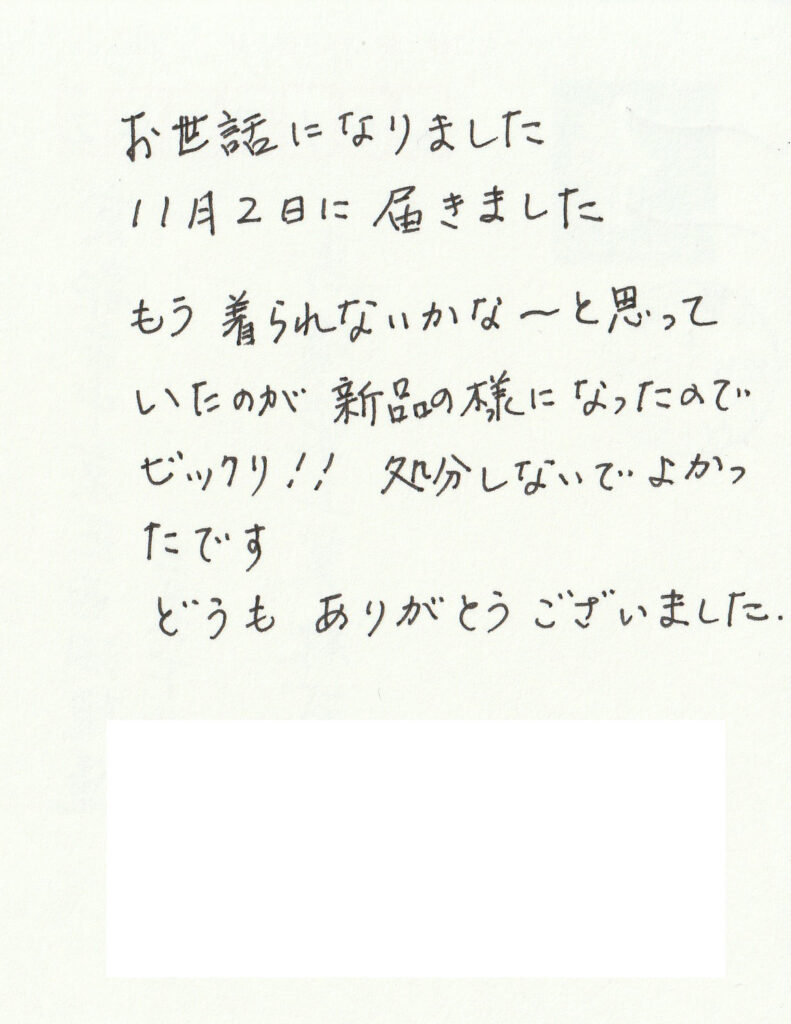 お世話になりました
11月2日に届きました
もう着られないかな〜と思って
いたのが新品の様になったので
ビックリ!! 処分しないでよかっ
たです
どうも ありがとうございました.